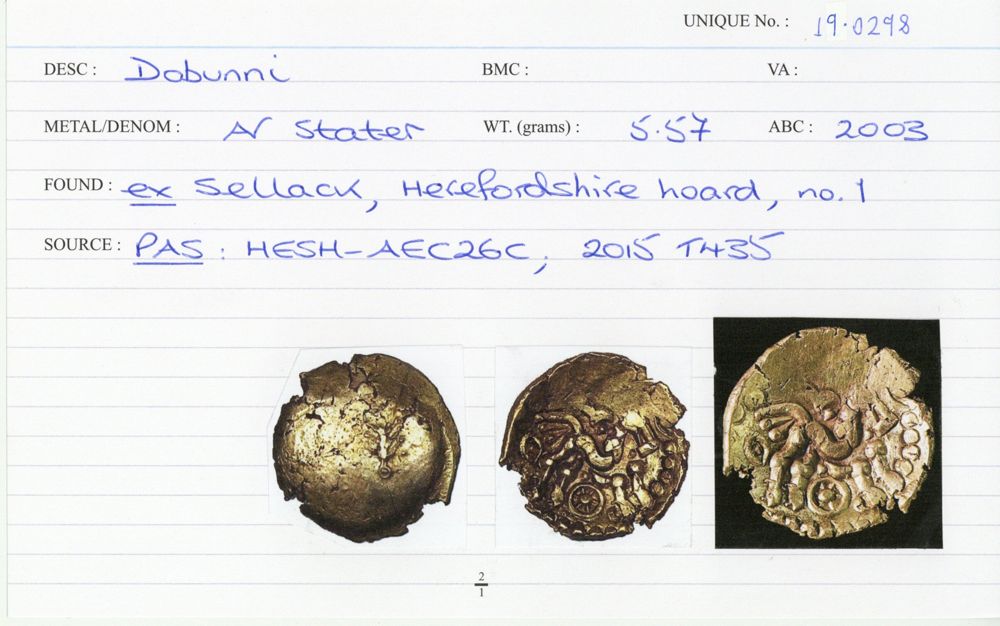 UNIQUE No. : 19.0298
DESC : Dobunni BMC : VA :
METAL/DENOM : AV Stater WT. (grams) : 5.57 ABC : 2003
FOUND : ex Sellack, Herefordshire hoard, no. 1
SOURCE : PAS : HESH-AEC26C, 2015 T435
2
1